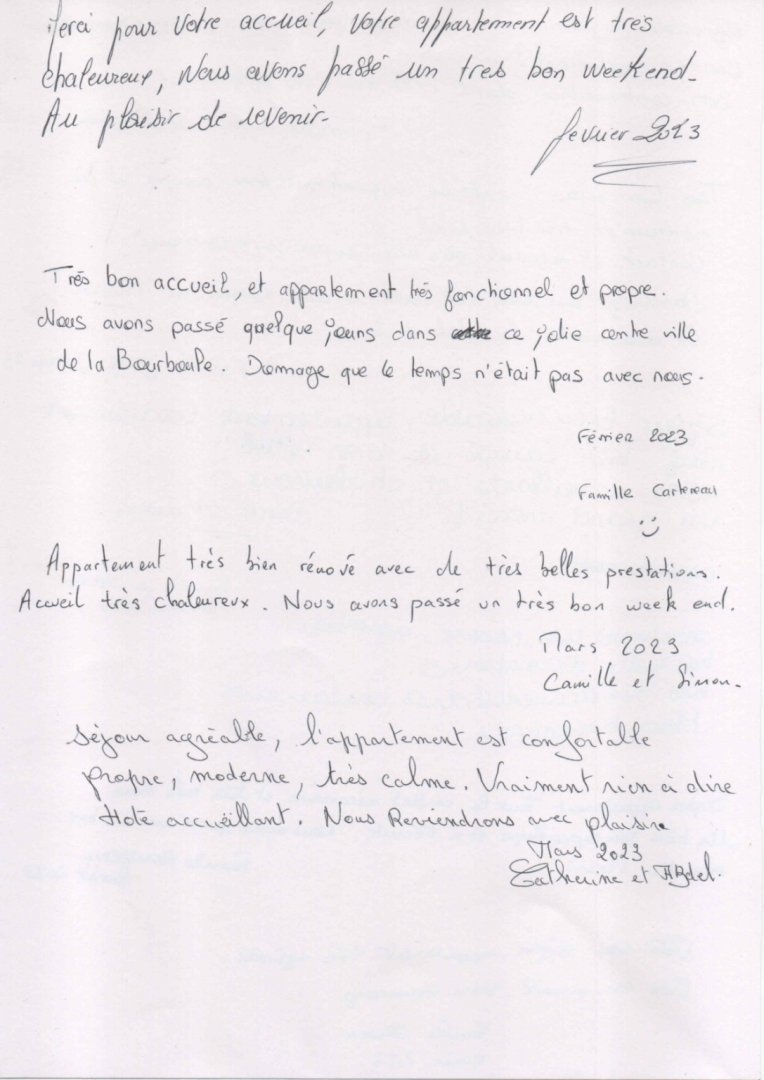 Merci pour votre accueil, votre appartement est tres
chaleureux, Nous avons passé un tres bon weekend.
Au plaisir de revenir.
fevrier 2023
Très bon accueil, et appartement très fonctionnel et propre.
Nous avons passé quelque jours dans ce jolie centre ville
de la Bourboule. Dommage que le temps n'était pas avec nous.
Février 2023
Famille Cartereau
Appartement très bien rénové avec de très belles prestations.
Accueil très chaleureux. Nous avons passé un très bon week end.
Mars 2023
Camille et Simon.
Séjour agréable, l'appartement est confortable
propre, moderne, très calme. Vraiment rien à dire
Hote accueillant. Nous Reviendrons avec plaisire
Mars 2023
Catherine et Abdel.